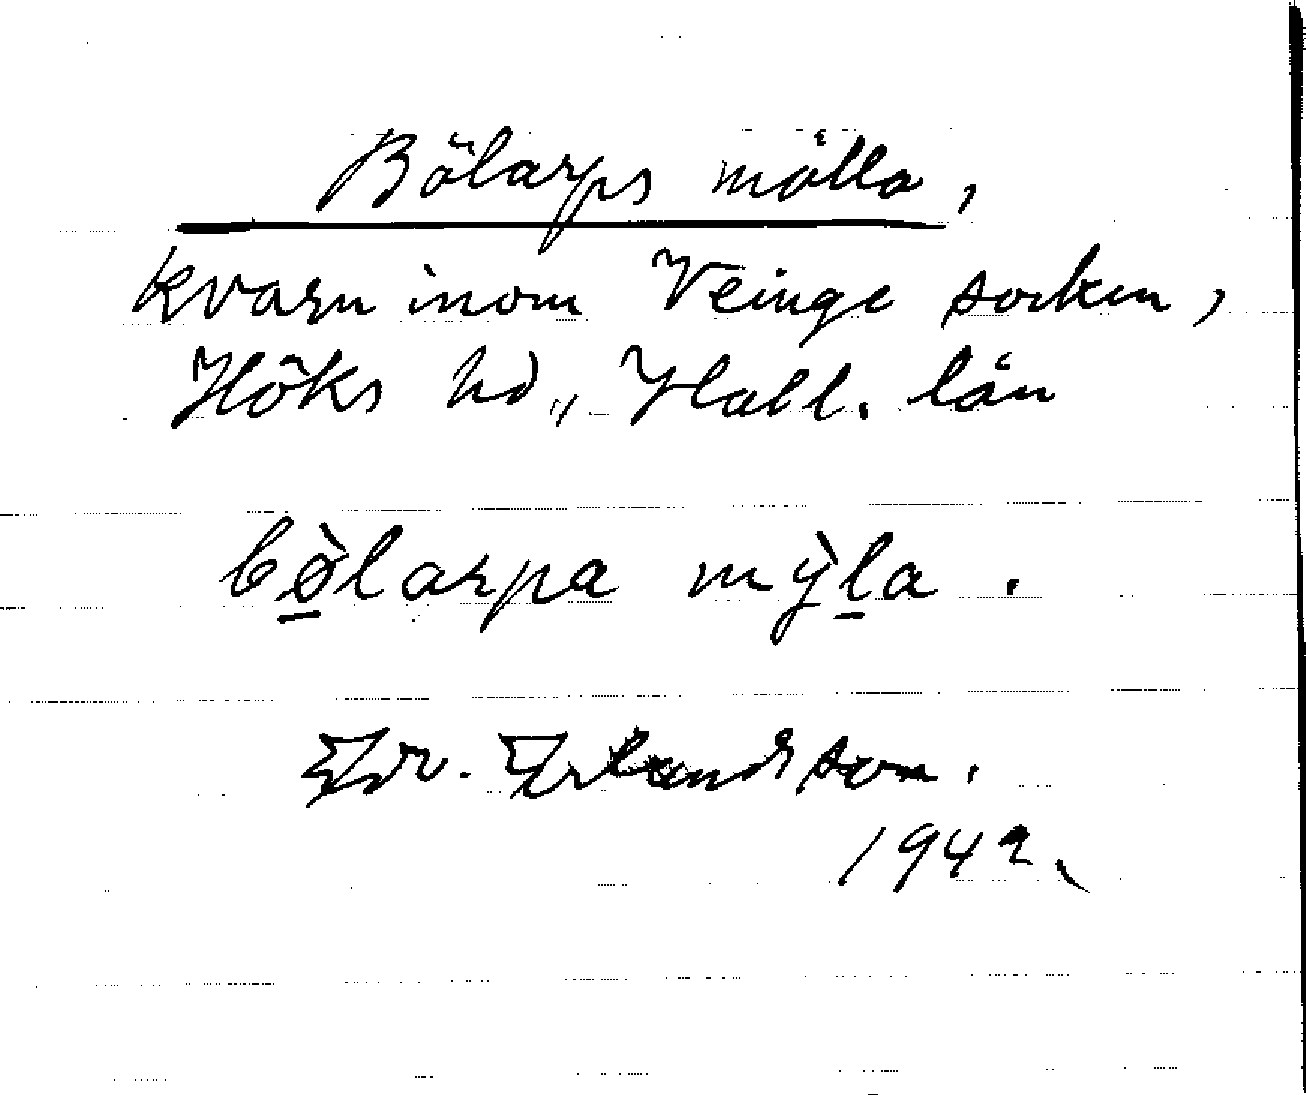 Bölarps mölla,
kvarn inom Veinge socken,
Höks hd., Hall. län
bø̲̀larpa mỳl̲a.
Edv. Erlandsson.
1942.